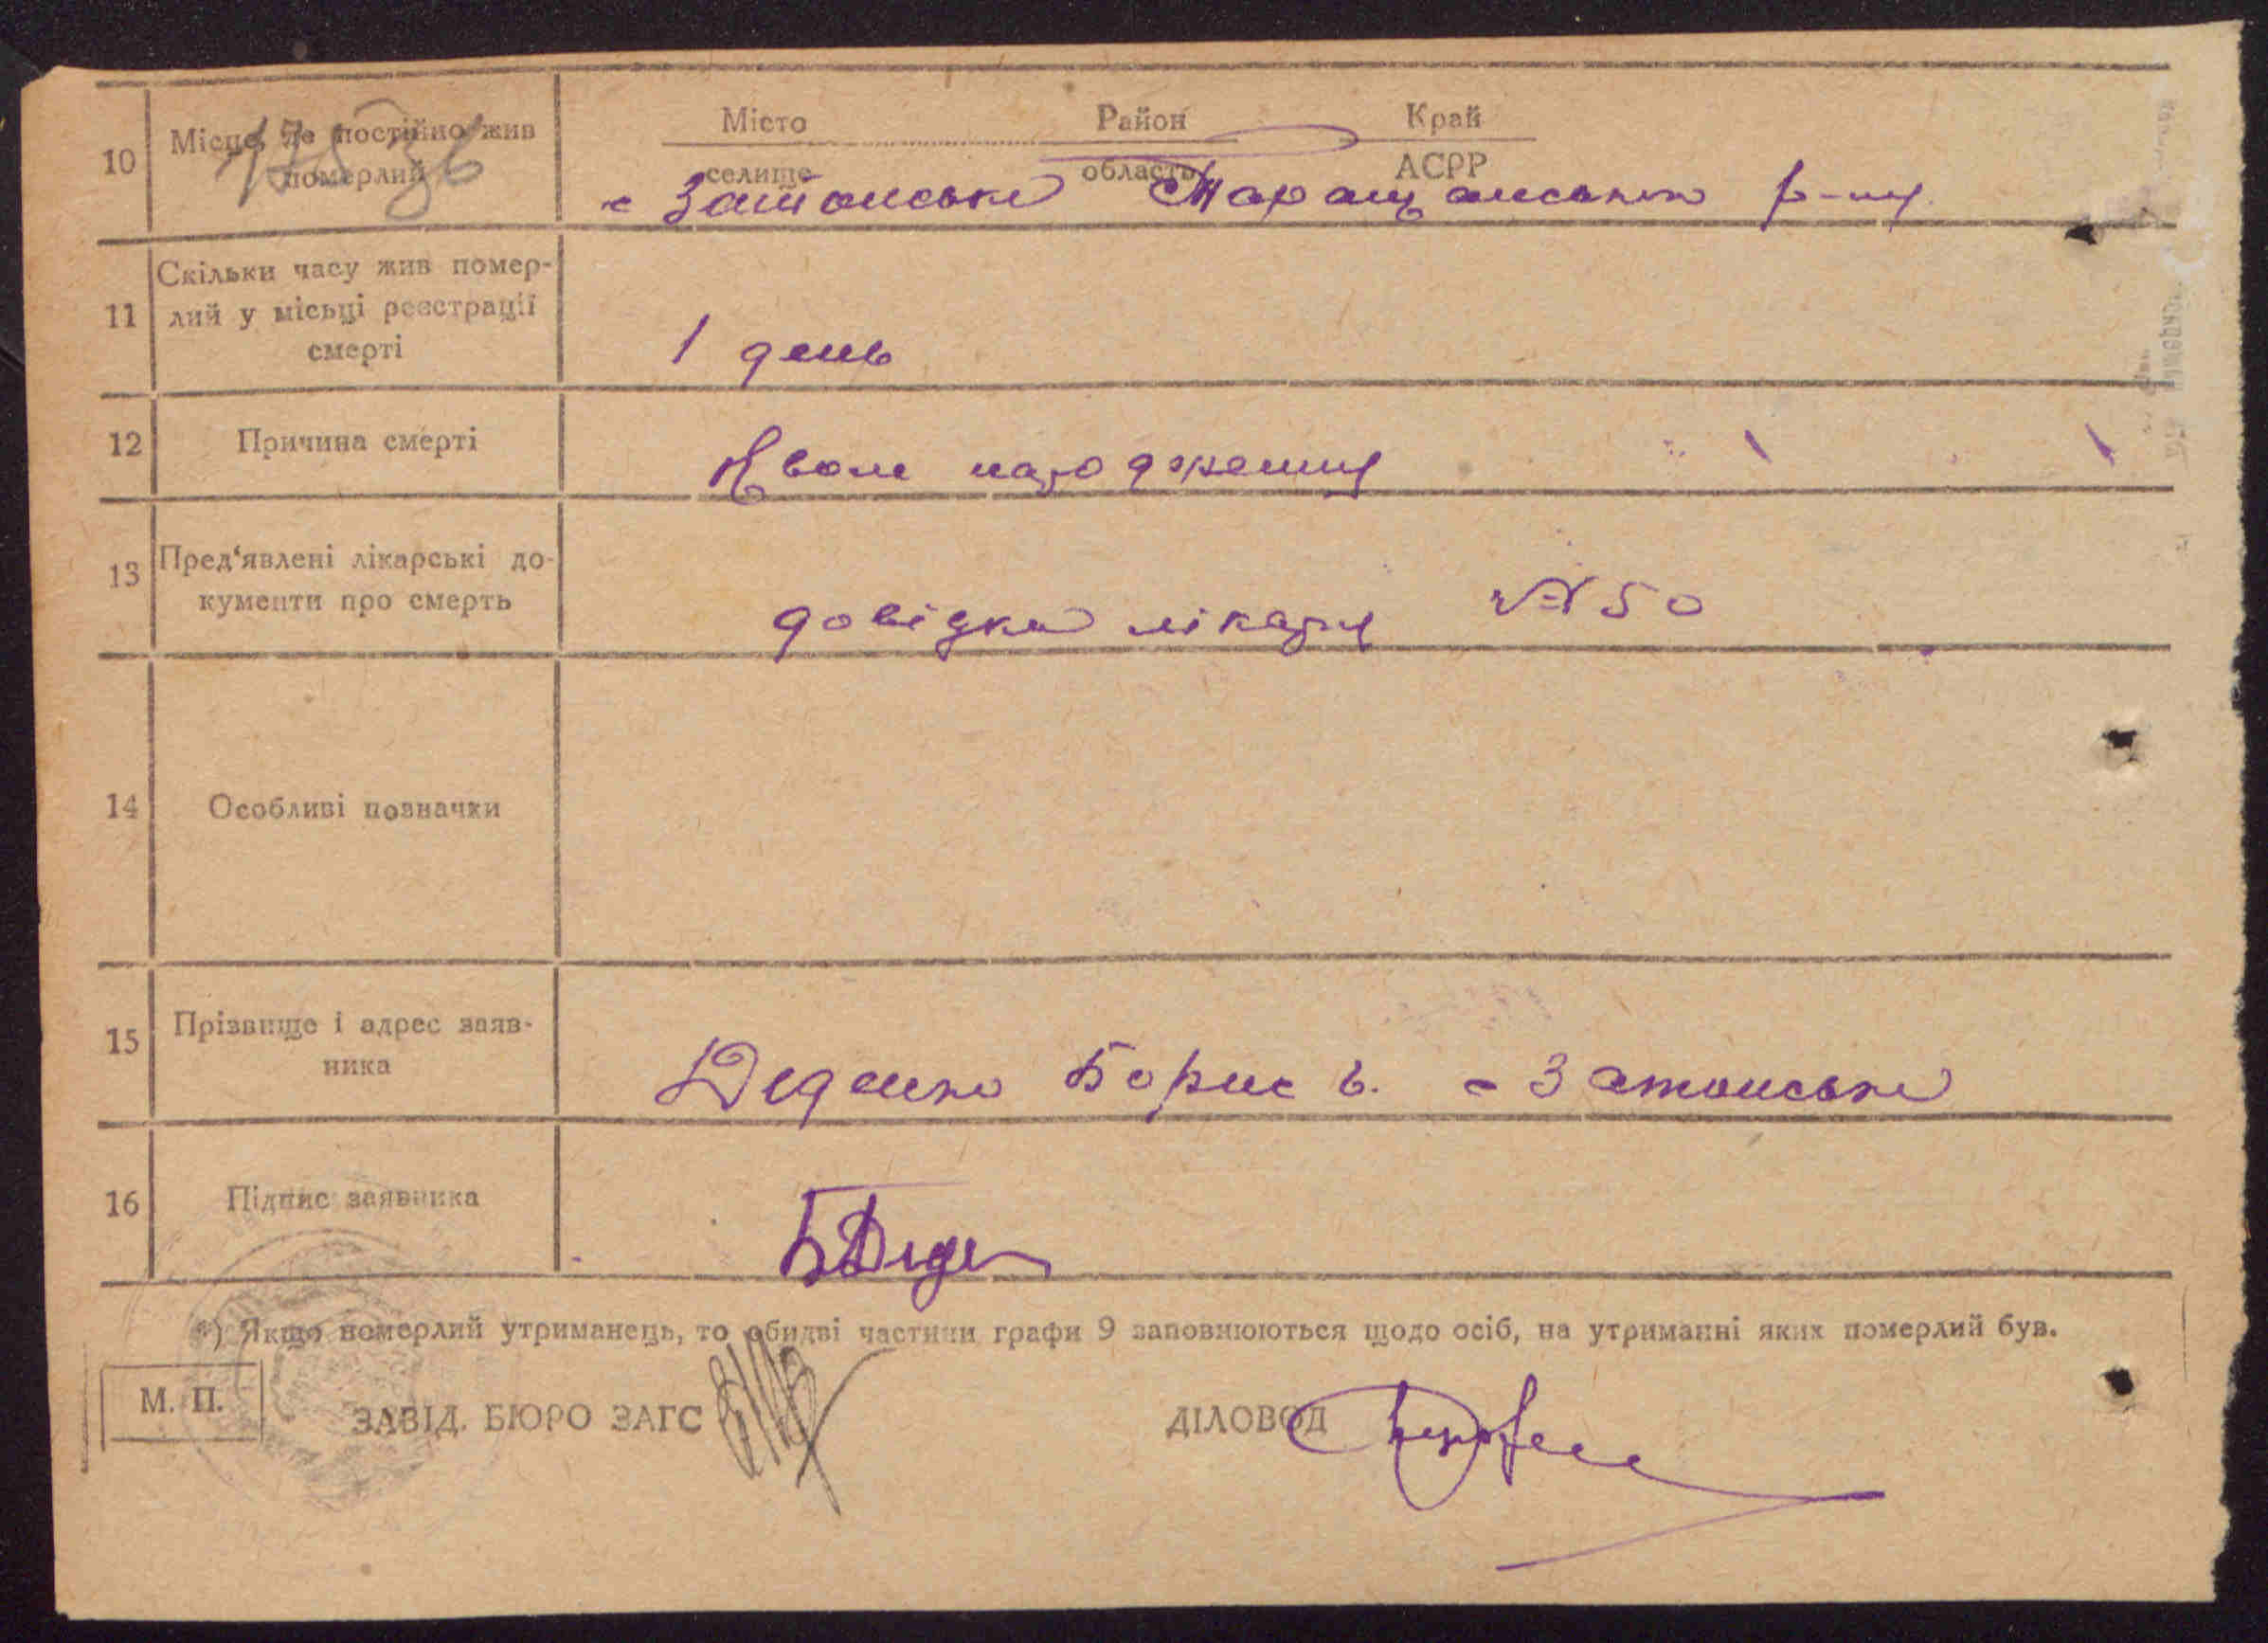 Місто Район Край
10 Місце, де постійно жив
померлий
селище область АСРР
с Затонське Таращанського р-ну
11 Скільки часу жив помер-
лий у місьці реєстрації
смерті
1 день
12 Причина смерті
Квол народження
13 Пред‘явлені лікарські до-
кументи про смерть
довідка лікаря № 50
14 Особливі позначки
15 Прізвище і адрес заяв-
ника
Діденко Борис В. с Затонське
16 Підпис заявника
БДіден
*) Якщо померлий утриманець, то обидві частини графи 9 заповнюються щодо осіб, на утриманні яких померлий був.
М. П.
ЗАВІД. БЮРО ЗАГС ДІЛОВОД